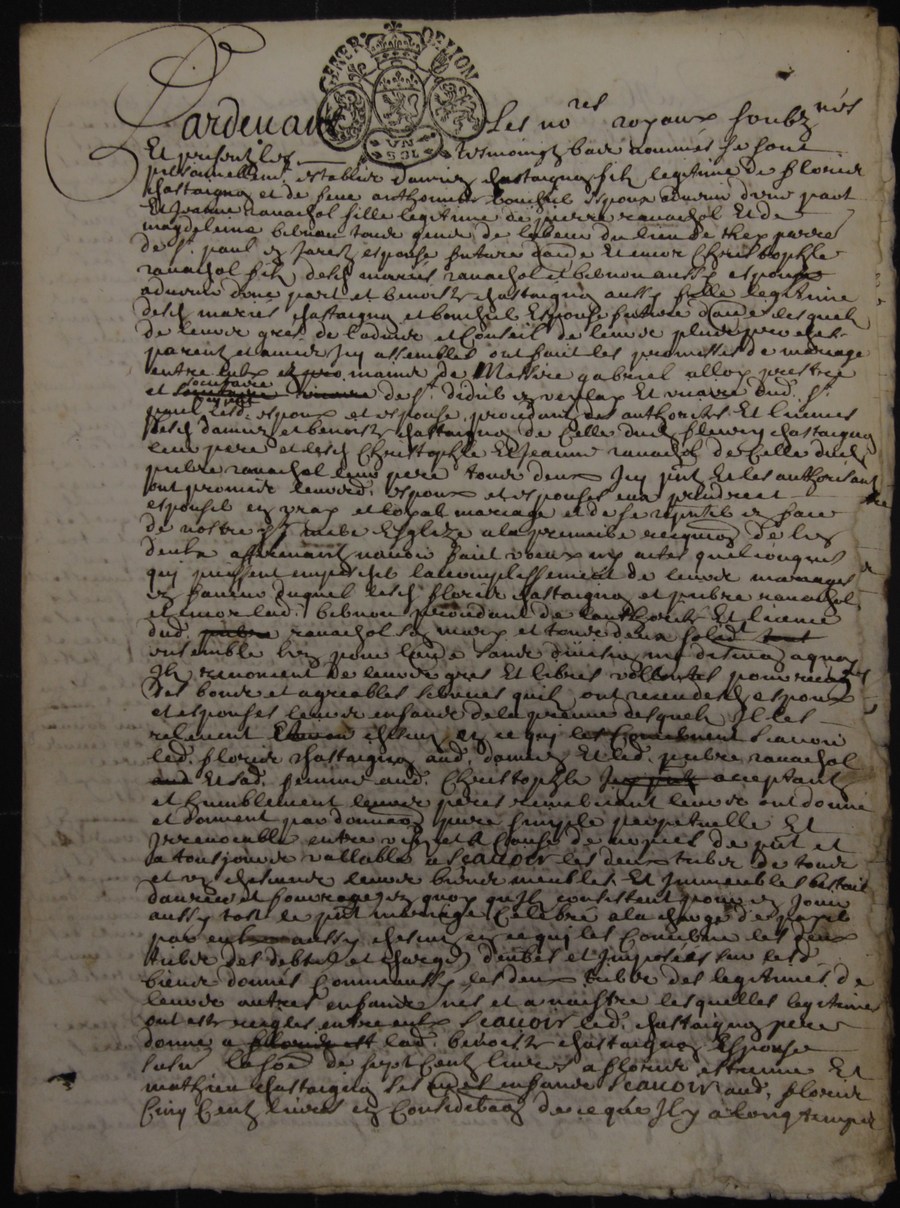 GENER DE LION
VN SOL
Pardevant Les no.res royaux soubz.nés
Et presentz les tesmoingz bas nommés se sont
personnellement establis Damien chastaignon filz legitime de florier
chastaignon et de feue anthoinette bouchet espoux advenir d'une part
Et Jeanne ravachol fille legitime de pierre ravachol Et de
magdeleine bibrion tous deux de du lieu de perre
de St. paul en Jarez espouse future d'autre Et encor Christophle
ravachol filz desd. mariés ravachol et bibrion aussy espoux
advenir d'une part et benoiste chastaignon aussy fille legitime
desd. mariés chastaignon et bouchet Espouse future d'autre lesquelz
de leurs grés de l'advis et Conseil de leurs plus proches
parentz et amis Icy assemblés ont fait les promesses de mariage
entre eulx en presence de Messire gabriel prestre
et societaire de St. didier en vellay Et vicaire dud. St.
paul lesd. espoux et espouse procedans des authorités Et licences
lesd. damien et benoiste chastaignon de Celle dud. fleury chastaignon
leur pere et lesd. Christophle Et Jeanne ravachol de Celle dud.
pierre ravachol leur pere tous deux Icy p.nt Et les authorisant
ont promis leursd. espoux et espouses eux prendre et
espouser en vray et loyal mariage et de se rep.nter en face
de nostre Ste. mere Esglize a la premiere requi.on de l'un
d'eulx affirmant n'avoir fait voeux ny actes quelconques
qui puissent empescher l'accomplissement de leurs mariages
en faveur duquel lesd. florier chastaignon et pierre ravachol
et encor lad. bibrion procedant de l'authorité Et licence
dud. ravachol son mary et tous deux solid.
ensemble l'un pour l'autre sans division ny discution a quoy
Ilz renoncent De leurs grés Et libres vollontés pour recompenser
des bons et agreables services qu'ilz ont receu desd. espoux
et espouses leurs enfans de la preuve desquelz Ilz les
relevent chacun en ce qui les Concernent scavoir
led. florier chastaignon aud. damien Et led. pierre ravachol
Et lad. femme aud. Christophle acceptant
et humblement leurs peres remerciant leurs ont donné
et donnent par dona.on pure simple perpetuelle Et
Irrevocable entre vifz et a Cause de nopces de p.nt et
a tousjours vallable a Scavoir les deux tiers de tous
et un chascuns leurs biens meubles Et Immeubles bestail
danrées et fourrages en quoy qu'ilz consistent pour en Jouir
aussy tost le p.nt mariage Celebré a la charge de payer
par eulx aussy chacun en ce qui les Concerne les deux
tiers des debtes et charges deubes et Imposées sur lesd.
biens donnés Comm'aussy les deux tiers des legitimes de
leurs autres enfans nés et a naistre lesquelles legitimes
ont esté reglés entre eulx Scavoir led. chastaignon pere
donne a lad. benoiste chastaignon Espouse
susd. la so.e de sept Cent livres a florier estienne Et
mathieu chastaignon ses enfans Scavoir aud. florier
Cinq Cent livres en Considera.on de ce que Il y a longtemps